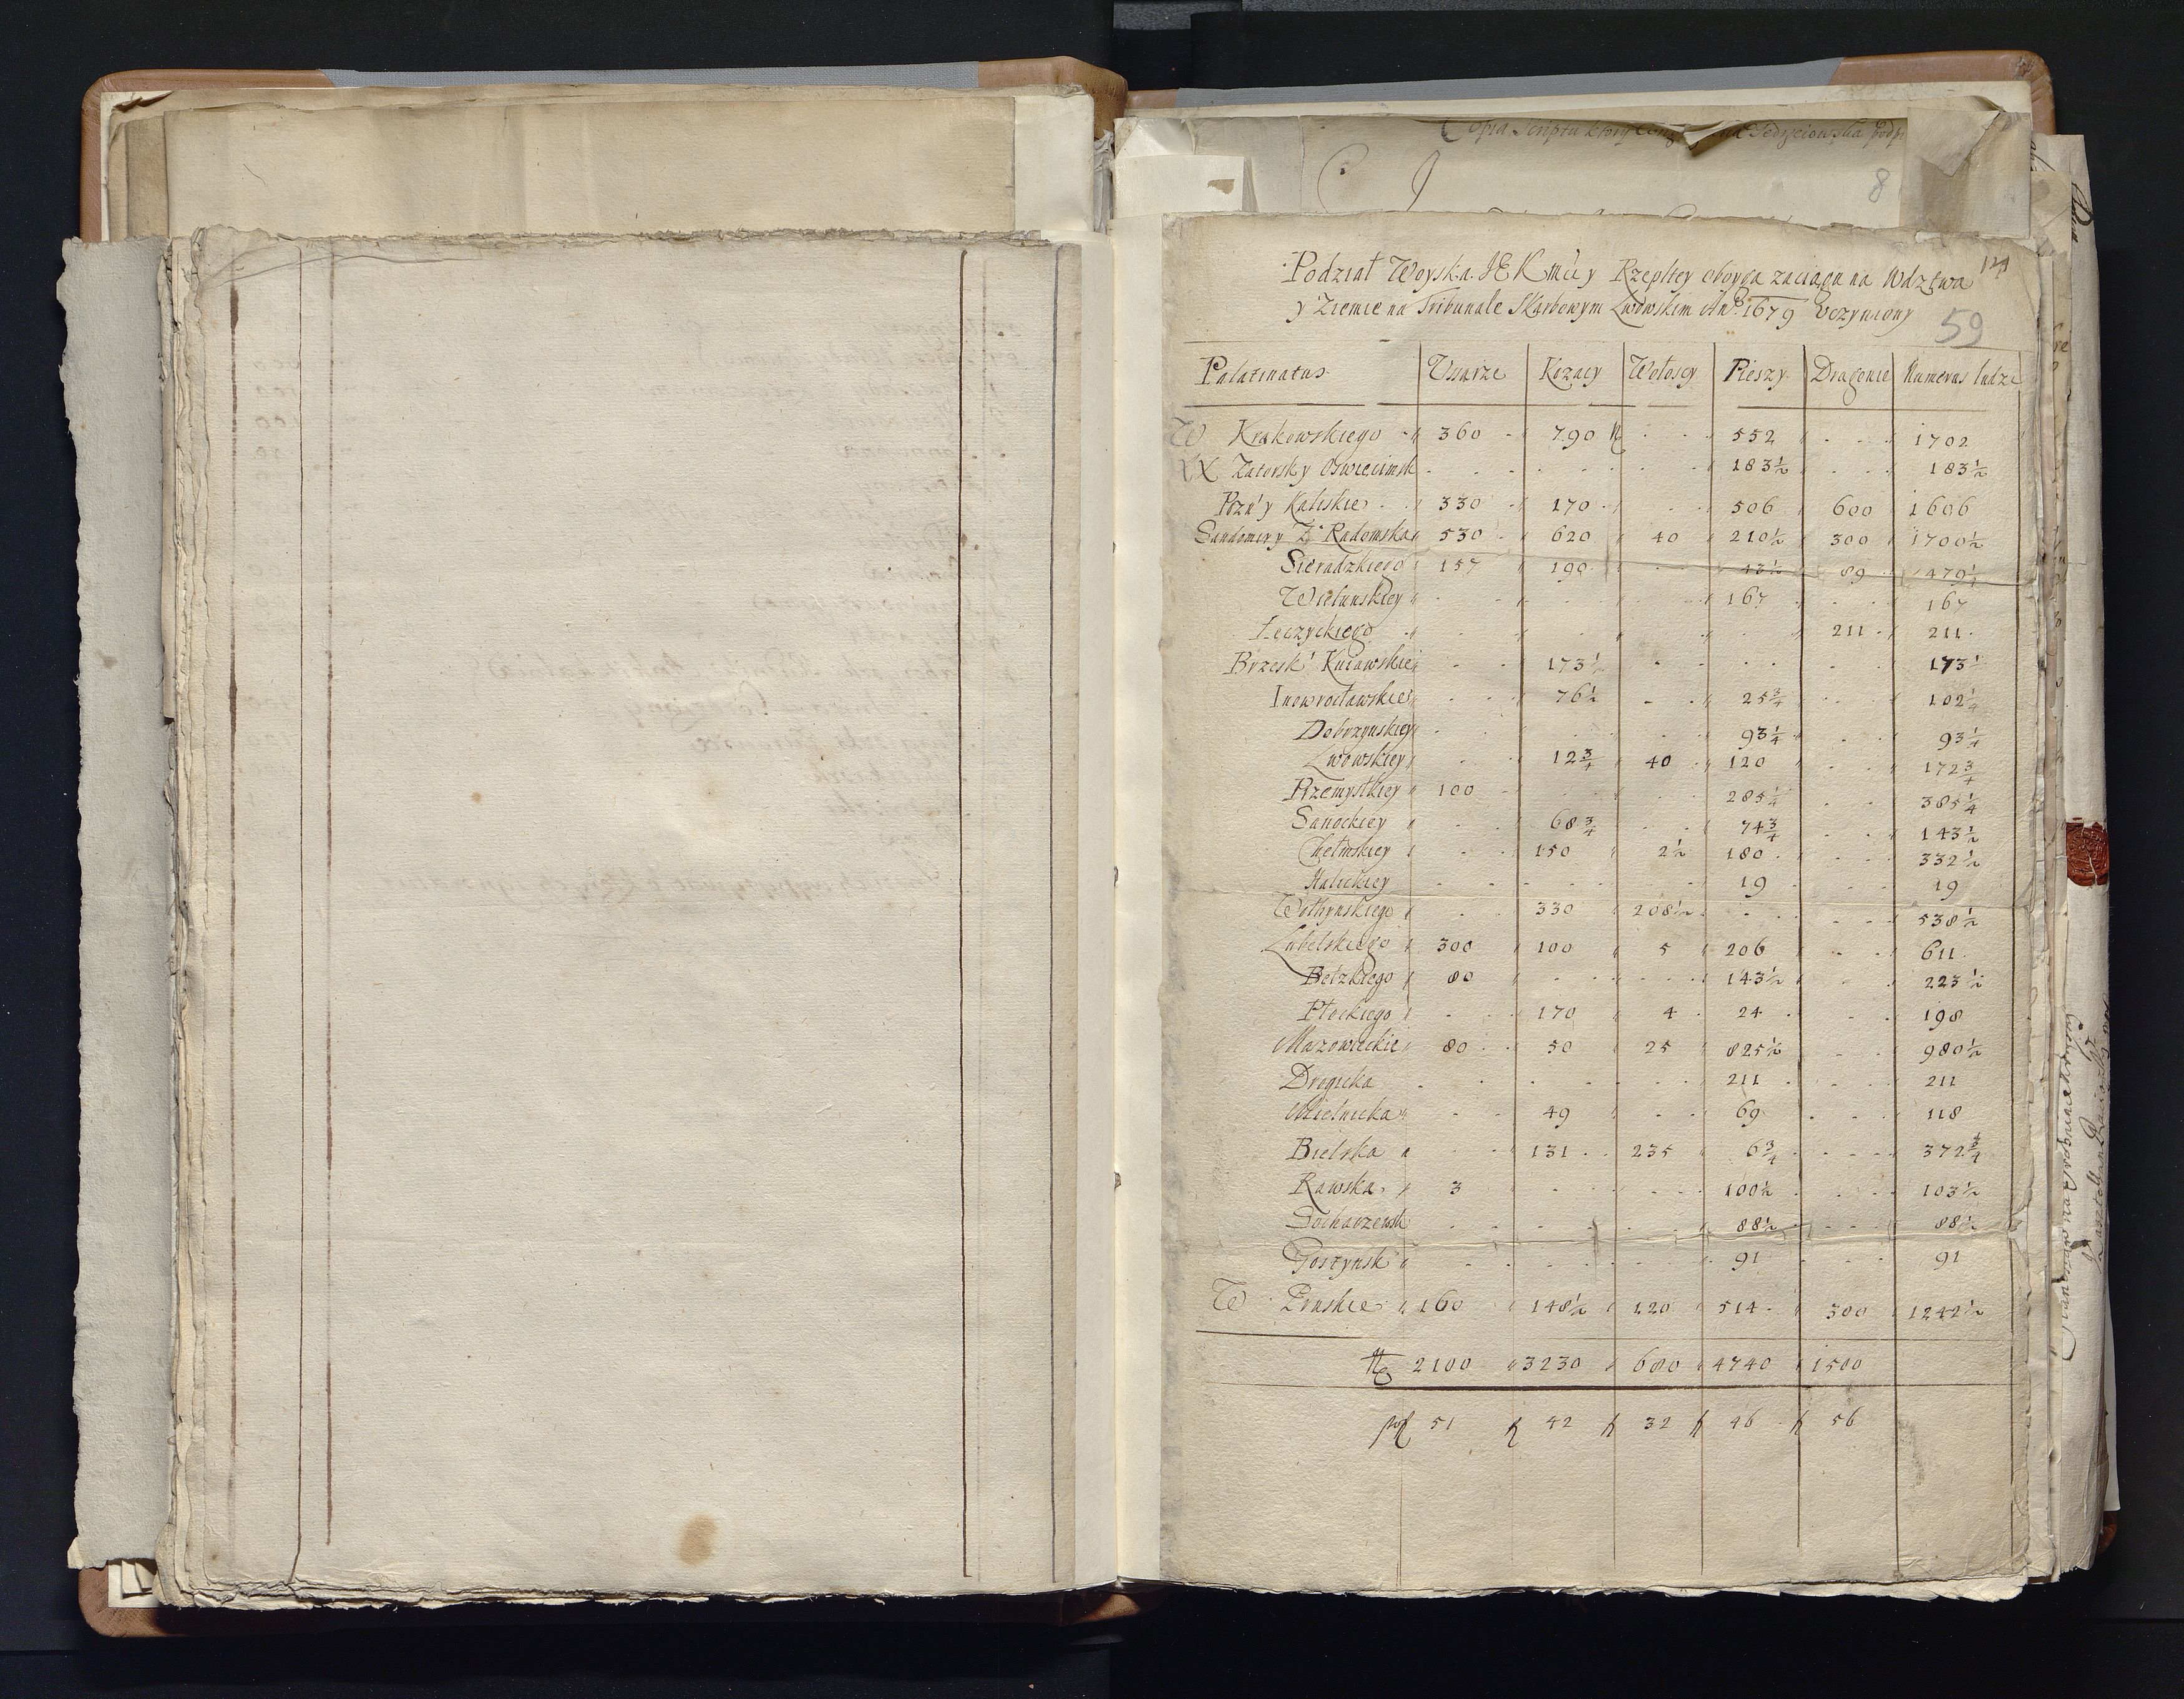 Copia Scriptu ktory
8
Podział Woyska JEKmci y Rzepltey oboyga zaciągu na Wdztwa
y Ziemie na Tribunale Skarbowym Lwowskim Ano 1679 Vczyniony
121
59
Palatinatus Usarze Kozacy Wołoscy Pieszy Dragonie Numerus ludzi
W Krakowskiego 360 790 552 1702
Zatorsky Oswiecimsk 183½ 183½
Pozn' y Kaliskie 330 170 506 600 1606
Sandomir y Za Radomska 530 620 40 210½ 300 1700½
Sieradzkiego 157 190 43½ 89 479½
Wielunskiey 167 167
Łęczyckiego 211 211
Brzesk' Kuiawskie 173½ 173½
Inowrocławskie 76½ 25¾ 102¼
Dobrzynskiey 93¼ 93¼
Lwowskiey 12¾ 40 120 172¾
Przemyslkiey 100 285¼ 385¼
Sanockiey 68¾ 74¾ 143½
Chełmskiey 150 2½ 180 332½
Halickiey 19 19
Wołhynskiego 330 208½ 538½
Lubelskiego 300 100 5 206 611
Bełzkiego 80 143½ 223½
Płockiego 170 4 24 198
Mazowieckie 80 50 25 825½ 980½
Drogicka 211 211
Mielnicka 49 69 118
Bielska 131 235 6¾ 372¾
Rawska 3 100½ 103½
Sochaczewsk 88½ 88½
Gostynsk 91 91
W Pruskie 160 148½ 120 514 300 1242½
2100 3230 680 4740 1500
51 42 32 46 56